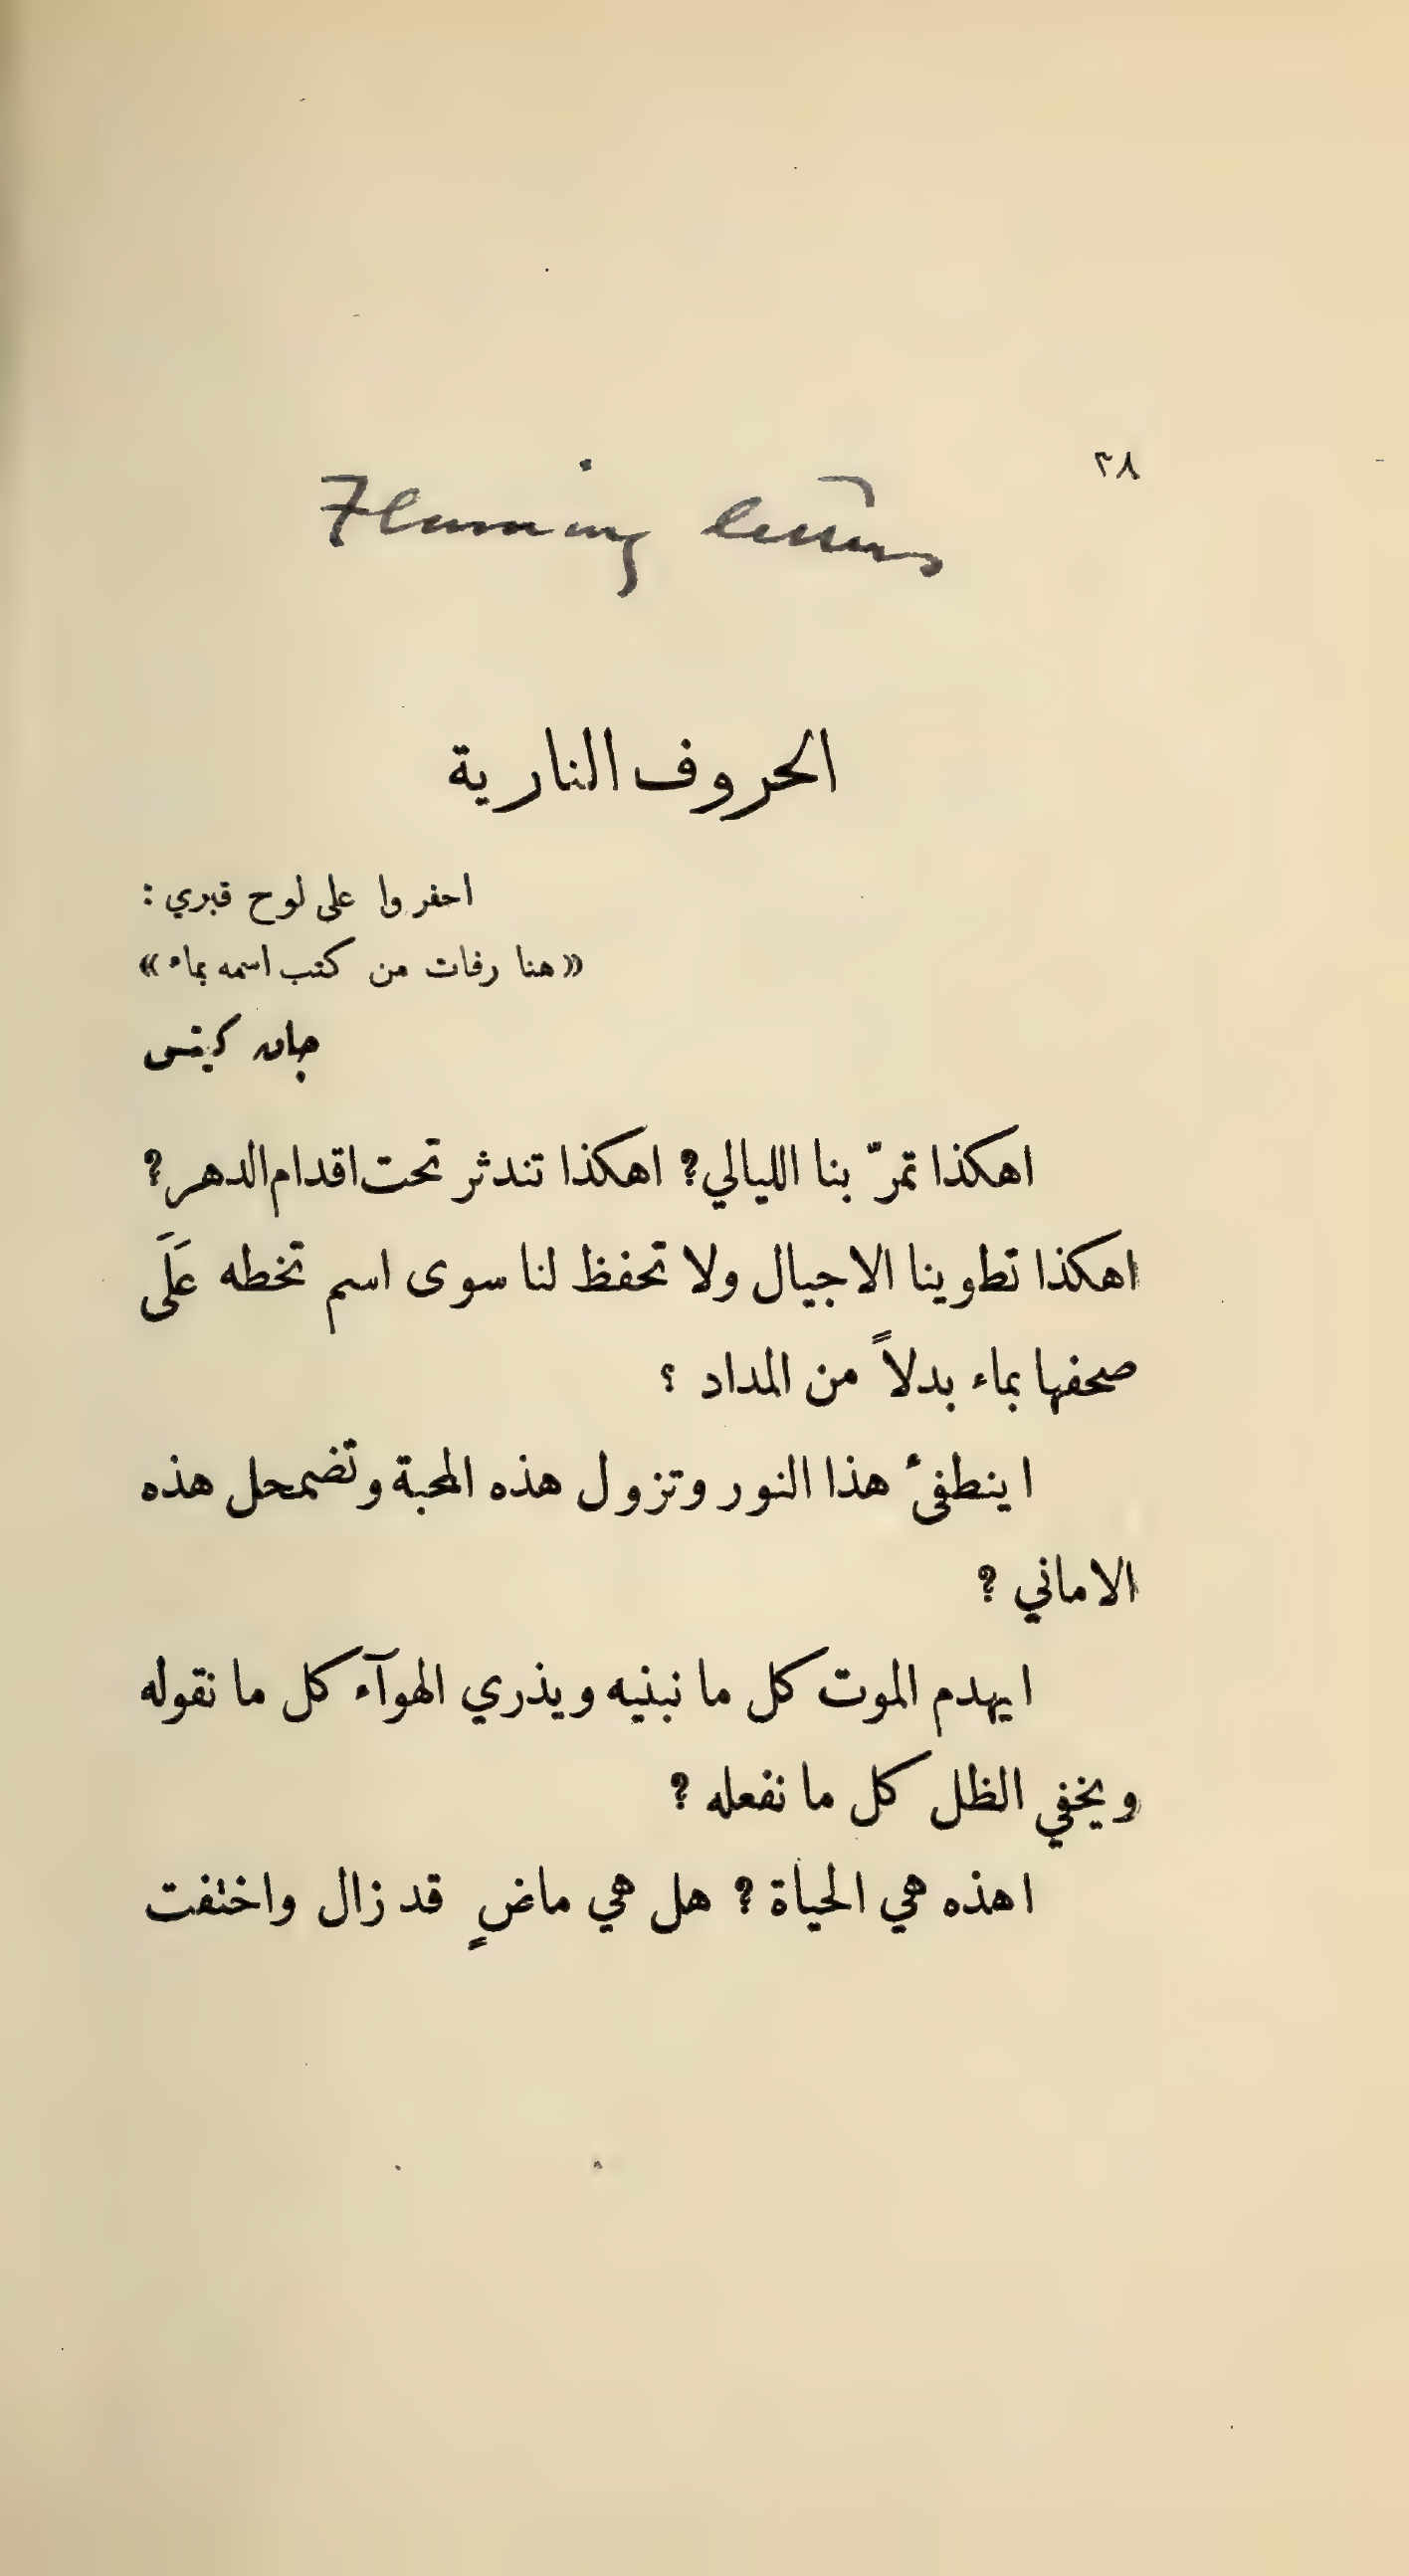 ٣٨
Flaming letters
الحروف النارية
احفروا على لوح قبري :
«هنا رفات من كتب اسمه بماء»
جان كيتس
اهكذا تمرّ بنا الليالي? اهكذا تندثر تحت اقدام الدهر?
اهكذا تطوينا الاجيال ولا تحفظ لنا سوى اسم تخطه عَلَى
صحفها بماء بدلاً من المداد ؟
اينطفئُ هذا النور وتزول هذه المحبة وتضمحل هذه
الاماني ?
ايهدم الموت كل ما نبنيه ويذري الهوآء كل ما نقوله
ويخفي الظل كل ما نفعله ?
اهذه هي الحياة ? هل هي ماضٍ قد زال واختفت